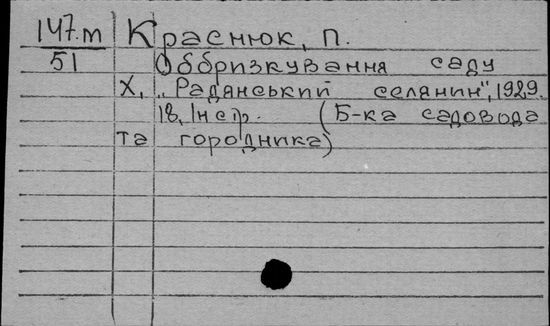 147.т Краснюк, П.
51 Оббризкування саду
Х, „Радянський селянин", 1929.
18, Інстр. (Б-ка садовода
та городника)